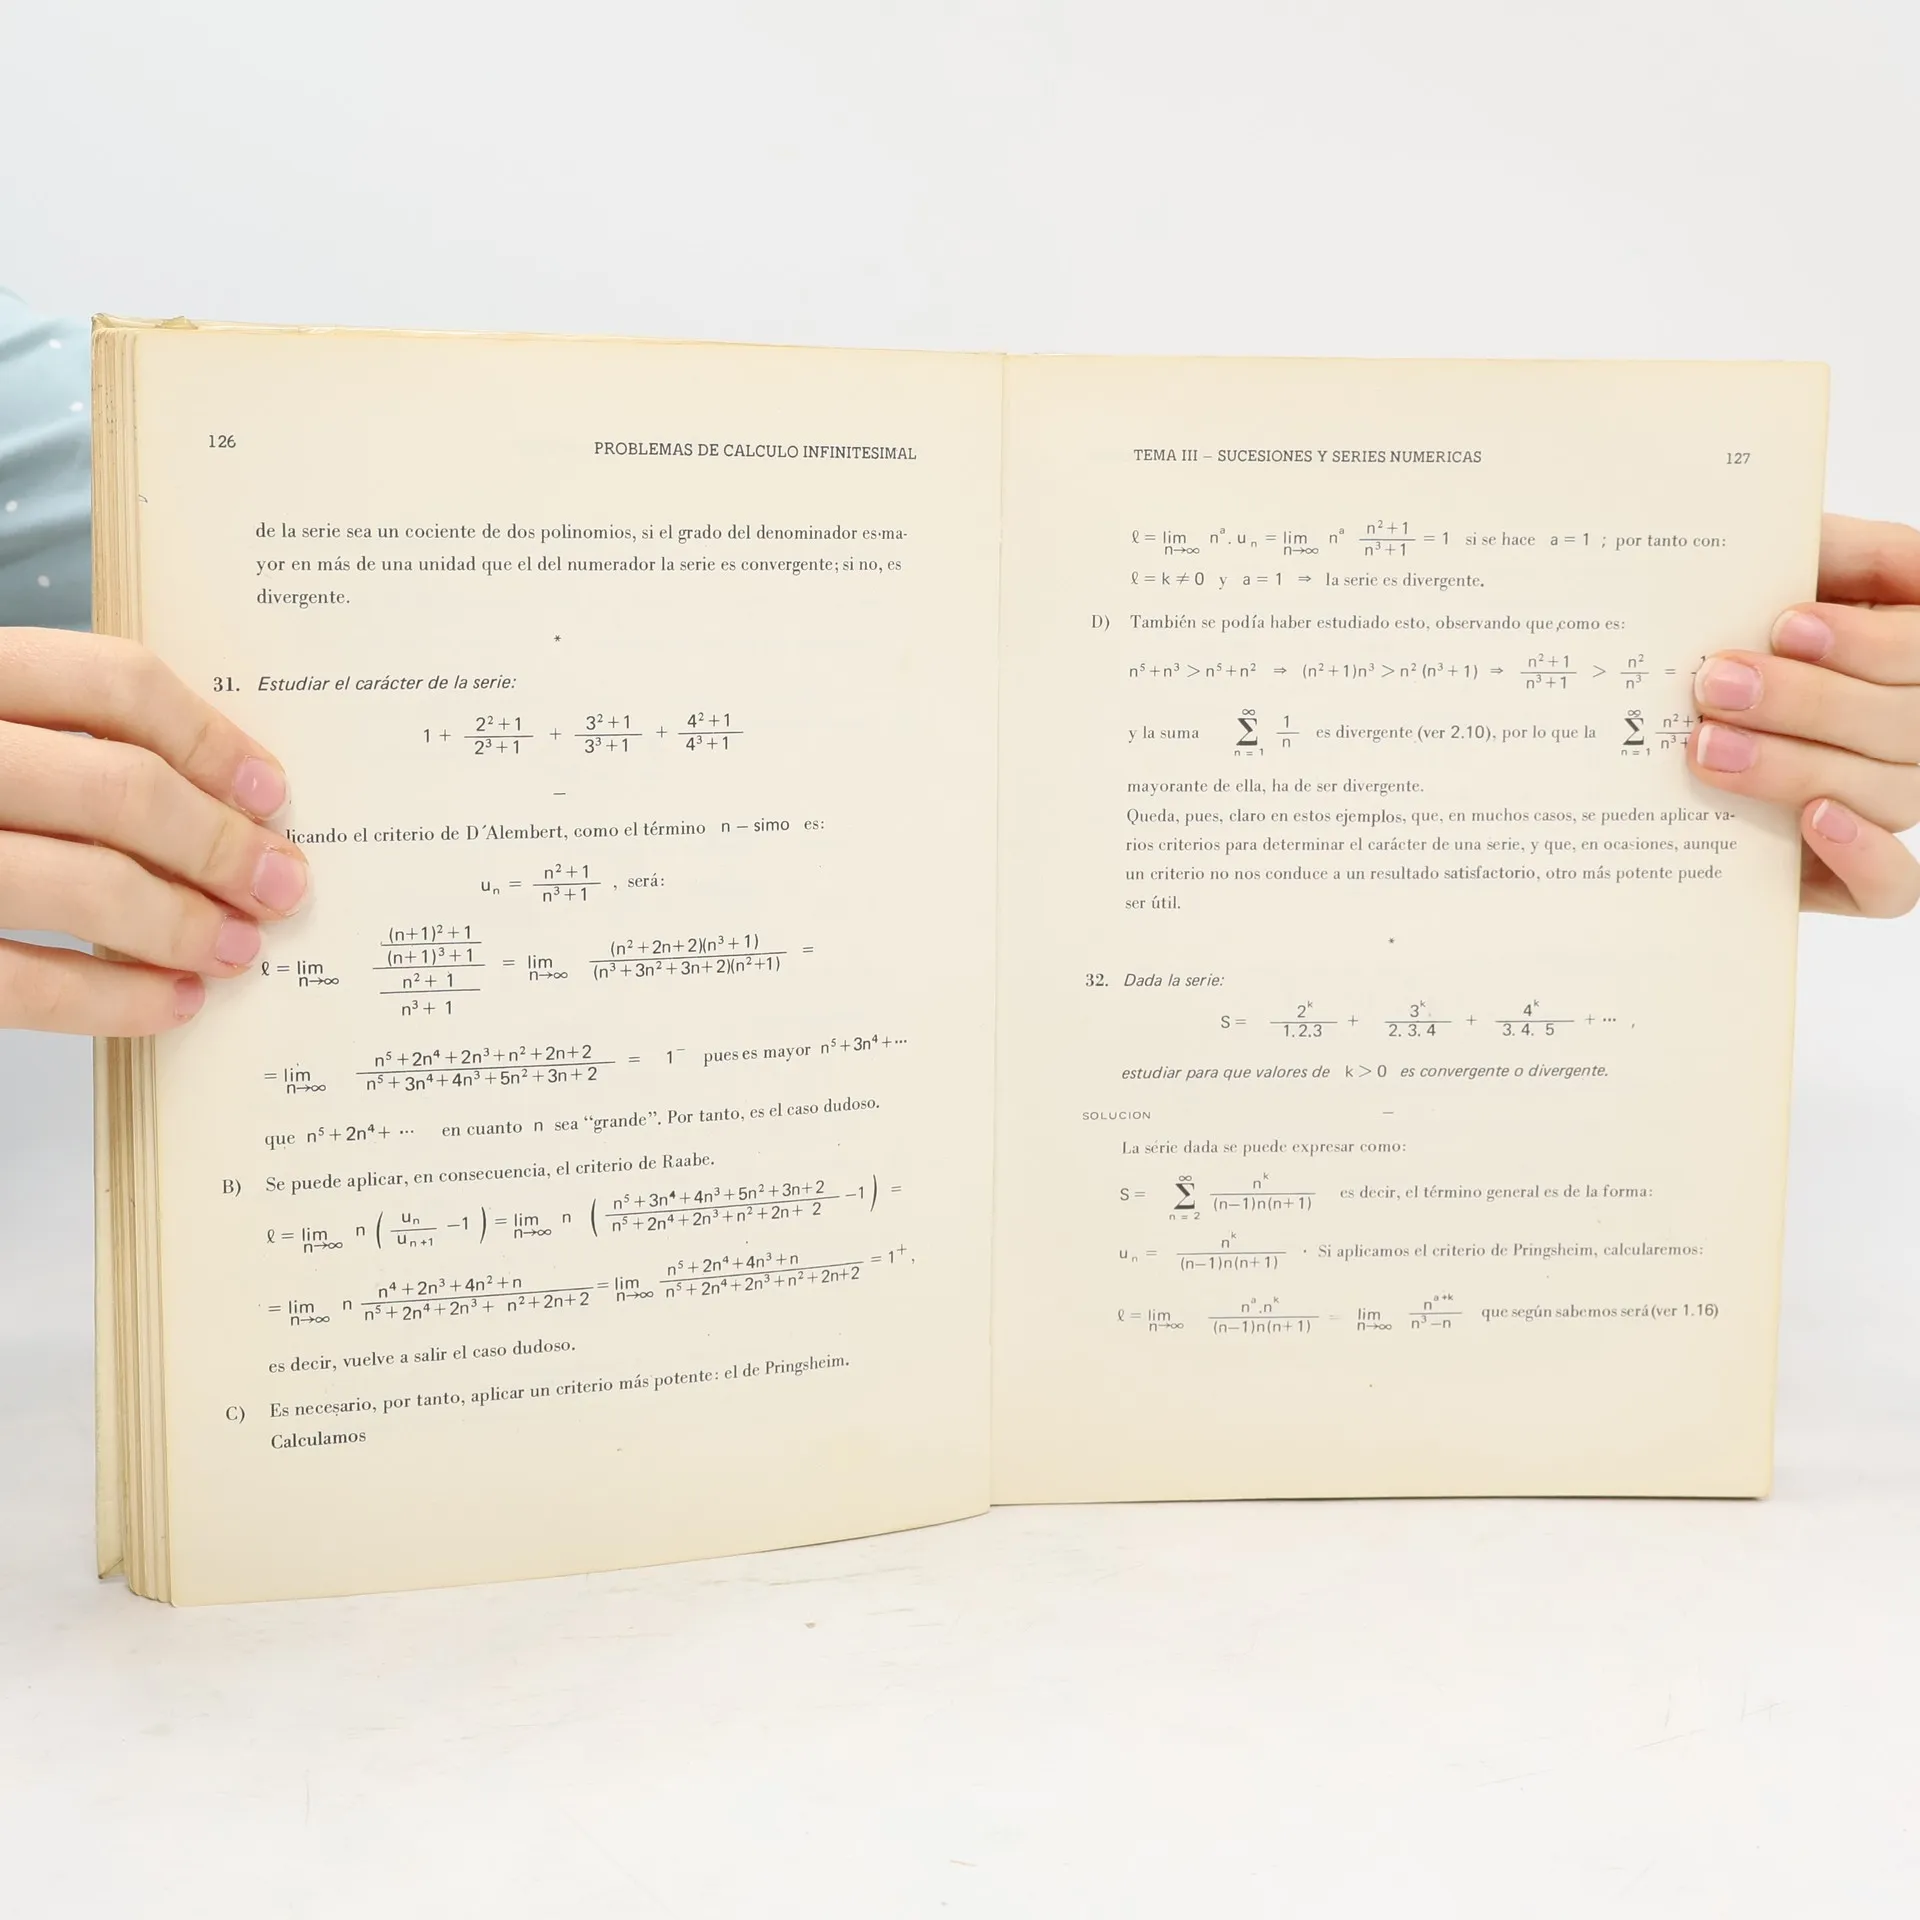 126
PROBLEMAS DE CALCULO INFINITESIMAL
de la serie sea un cociente de dos polinomios, si el grado del denominador es ma-
yor en más de una unidad que el del numerador la serie es convergente; si no, es
divergente.
*
31. Estudiar el carácter de la serie:
1 + (2² + 1)/(2³ + 1) + (3² + 1)/(3³ + 1) + (4² + 1)/(4³ + 1)
—
licando el criterio de D´Alembert, como el término n – simo es:
uₙ = (n² + 1)/(n³ + 1) , será:
ℓ = lim n→∞ (((n+1)² + 1)/((n+1)³ + 1))/((n² + 1)/(n³ + 1)) = lim n→∞ ((n² + 2n + 2)(n³ + 1))/((n³ + 3n² + 3n + 2)(n² + 1)) =
= lim n→∞ (n⁵ + 2n⁴ + 2n³ + n² + 2n + 2)/(n⁵ + 3n⁴ + 4n³ + 5n² + 3n + 2) = 1⁻ pues es mayor n⁵ + 3n⁴ + ···
que n⁵ + 2n⁴ + ··· en cuanto n sea “grande”. Por tanto, es el caso dudoso.
B) Se puede aplicar, en consecuencia, el criterio de Raabe.
ℓ = lim n→∞ n (uₙ/uₙ₊₁ –1) = lim n→∞ n ((n⁵ + 3n⁴ + 4n³ + 5n² + 3n + 2)/(n⁵ + 2n⁴ + 2n³ + n² + 2n + 2) –1) =
= lim n→∞ n (n⁴ + 2n³ + 4n² + n)/(n⁵ + 2n⁴ + 2n³ + n² + 2n + 2) = lim n→∞ (n⁵ + 2n⁴ + 4n³ + n)/(n⁵ + 2n⁴ + 2n³ + n² + 2n + 2) = 1⁺,
es decir, vuelve a salir el caso dudoso.
C) Es necesario, por tanto, aplicar un criterio más potente: el de Pringsheim.
Calculamos
TEMA III – SUCESIONES Y SERIES NUMERICAS
127
ℓ = lim n→∞ nᵃ . uₙ = lim n→∞ nᵃ (n² + 1)/(n³ + 1) = 1 si se hace a = 1 ; por tanto con:
ℓ = k ≠ 0 y a = 1 ⇒ la serie es divergente.
D) También se podía haber estudiado esto, observando que, como es:
n⁵ + n³ > n⁵ + n² ⇒ (n² + 1)n³ > n² (n³ + 1) ⇒ (n² + 1)/(n³ + 1) > n²/n³ =
y la suma ∞ Σ n = 1 1/n es divergente (ver 2.10), por lo que la ∞ Σ n = 1 n² + 1/n³ +
mayorante de ella, ha de ser divergente.
Queda, pues, claro en estos ejemplos, que, en muchos casos, se pueden aplicar va-
rios criterios para determinar el carácter de una serie, y que, en ocasiones, aunque
un criterio no nos conduce a un resultado satisfactorio, otro más potente puede
ser útil.
*
32. Dada la serie:
S = 2ᵏ/1.2.3 + 3ᵏ/2. 3. 4 + 4ᵏ/3. 4. 5 + ··· ,
estudiar para que valores de k > 0 es convergente o divergente.
SOLUCION —
La serie dada se puede expresar como:
S = ∞ Σ n = 2 nᵏ/((n–1)n(n+1)) es decir, el término general es de la forma:
uₙ = nᵏ/((n–1)n(n+1)) . Si aplicamos el criterio de Pringsheim, calcularemos:
ℓ = lim n→∞ nᵃ.nᵏ/((n–1)n(n+1)) = lim n→∞ nᵃ⁺ᵏ/(n³ – n) que según sabemos será (ver 1.16)